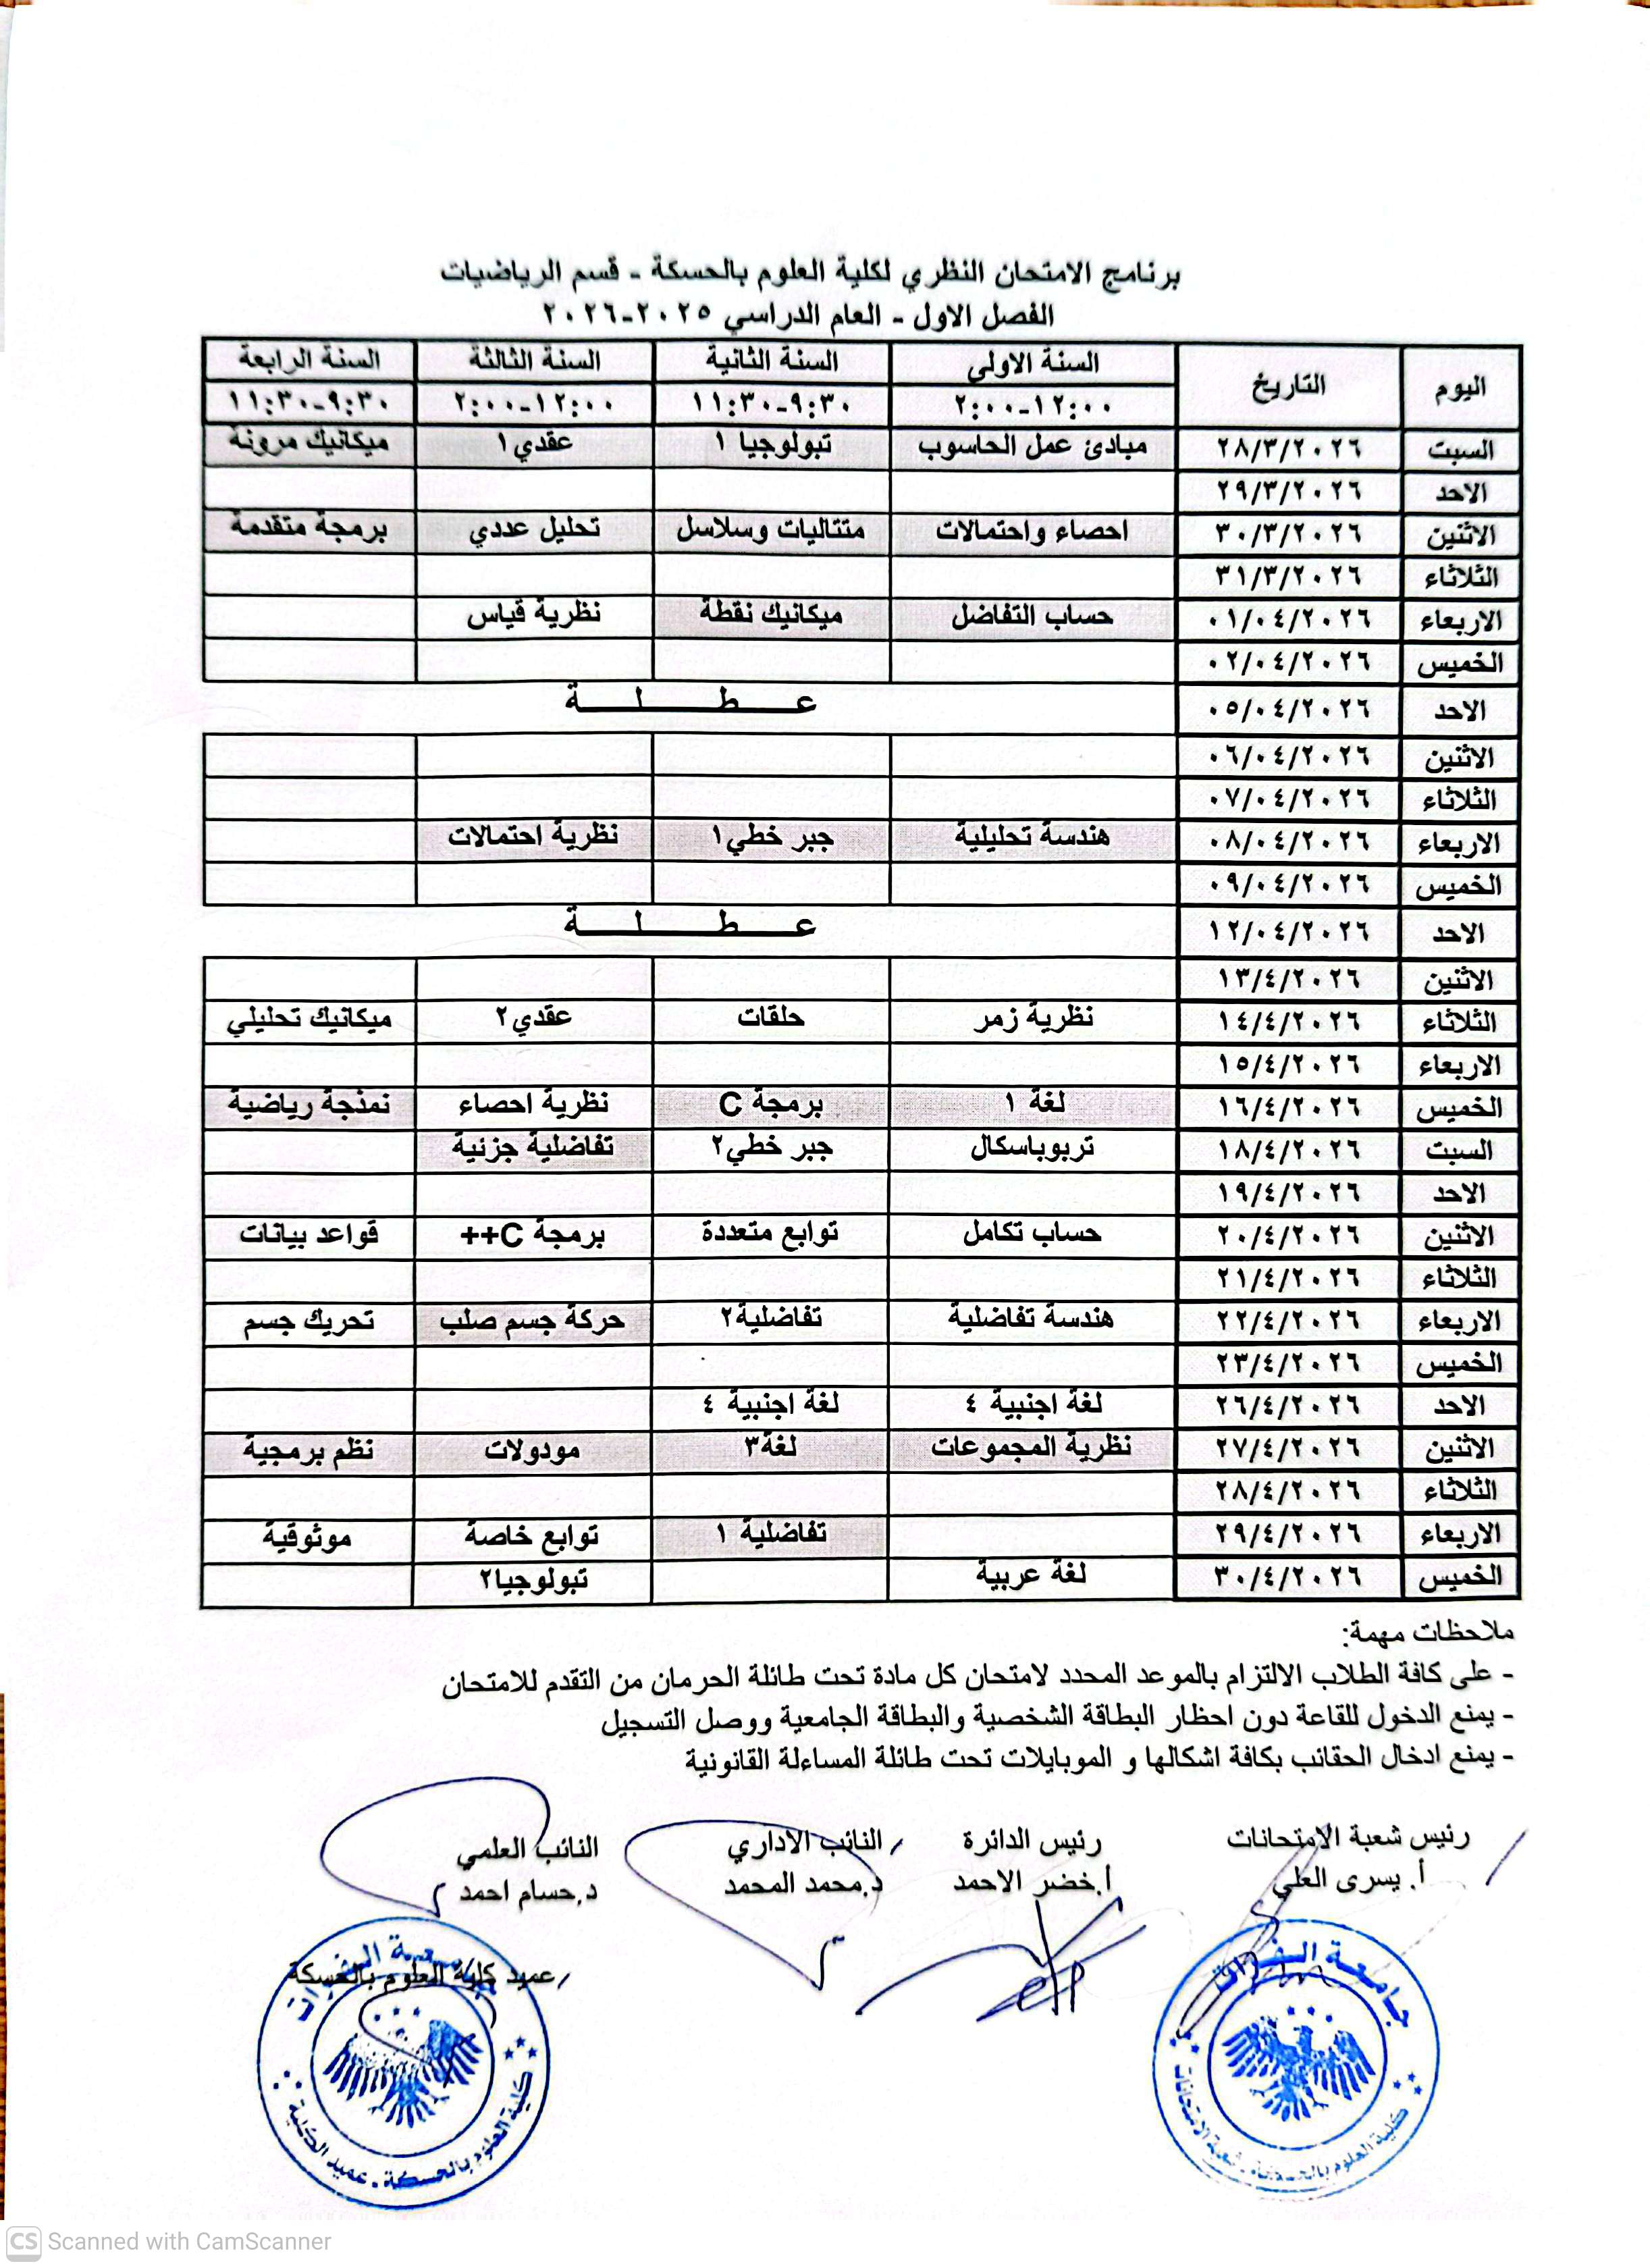 برنامج الامتحان النظري لكلية العلوم بالحسكة - قسم الرياضيات
الفصل الاول - العام الدراسي ٢٠٢٥-٢٠٢٦
اليوم التاريخ السنة الاولى السنة الثانية السنة الثالثة السنة الرابعة
١٢:٠٠-٢:٠٠ ٩:٣٠-١١:٣٠ ١٢:٠٠-٢:٠٠ ٩:٣٠-١١:٣٠
السبت ٢٨/٣/٢٠٢٦ مبادئ عمل الحاسوب تبولوجيا ١ عقدي١ ميكانيك مرونة
الاحد ٢٩/٣/٢٠٢٦
الاثنين ٣٠/٣/٢٠٢٦ احصاء واحتمالات متتاليات وسلاسل تحليل عددي برمجة متقدمة
الثلاثاء ٣١/٣/٢٠٢٦
الاربعاء ٠١/٠٤/٢٠٢٦ حساب التفاضل ميكانيك نقطة نظرية قياس
الخميس ٠٢/٠٤/٢٠٢٦
الاحد ٠٥/٠٤/٢٠٢٦ عـــطـــلـــة
الاثنين ٠٦/٠٤/٢٠٢٦
الثلاثاء ٠٧/٠٤/٢٠٢٦
الاربعاء ٠٨/٠٤/٢٠٢٦ هندسة تحليلية جبر خطي١ نظرية احتمالات
الخميس ٠٩/٠٤/٢٠٢٦
الاحد ١٢/٠٤/٢٠٢٦ عـــطـــلـــة
الاثنين ١٣/٤/٢٠٢٦
الثلاثاء ١٤/٤/٢٠٢٦ نظرية زمر حلقات عقدي٢ ميكانيك تحليلي
الاربعاء ١٥/٤/٢٠٢٦
الخميس ١٦/٤/٢٠٢٦ لغة ١ برمجة C نظرية احصاء نمذجة رياضية
السبت ١٨/٤/٢٠٢٦ تربوباسكال جبر خطي٢ تفاضلية جزئية
الاحد ١٩/٤/٢٠٢٦
الاثنين ٢٠/٤/٢٠٢٦ حساب تكامل توابع متعددة برمجة C++ قواعد بيانات
الثلاثاء ٢١/٤/٢٠٢٦
الاربعاء ٢٢/٤/٢٠٢٦ هندسة تفاضلية تفاضلية٢ حركة جسم صلب تحريك جسم
الخميس ٢٣/٤/٢٠٢٦
الاحد ٢٦/٤/٢٠٢٦ لغة اجنبية ٤ لغة اجنبية ٤
الاثنين ٢٧/٤/٢٠٢٦ نظرية المجموعات لغة٣ مودولات نظم برمجية
الثلاثاء ٢٨/٤/٢٠٢٦
الاربعاء ٢٩/٤/٢٠٢٦ تفاضلية ١ توابع خاصة موثوقية
الخميس ٣٠/٤/٢٠٢٦ لغة عربية تبولوجيا٢
ملاحظات مهمة:
- على كافة الطلاب الالتزام بالموعد المحدد لامتحان كل مادة تحت طائلة الحرمان من التقدم للامتحان
- يمنع الدخول للقاعة دون احظار البطاقة الشخصية والبطاقة الجامعية ووصل التسجيل
- يمنع ادخال الحقائب بكافة اشكالها و الموبايلات تحت طائلة المساءلة القانونية
رئيس شعبة الامتحانات رئيس الدائرة النائب الاداري النائب العلمي
أ. يسرى العلي أ.خضر الاحمد د.محمد المحمد د.حسام احمد
عميد كلية العلوم بالحسكة
جامعة الفرات
كلية العلوم بالحسكة - شعبة الامتحانات
جامعة الفرات
كلية العلوم بالحسكة - عميد الكلية
CS Scanned with CamScanner